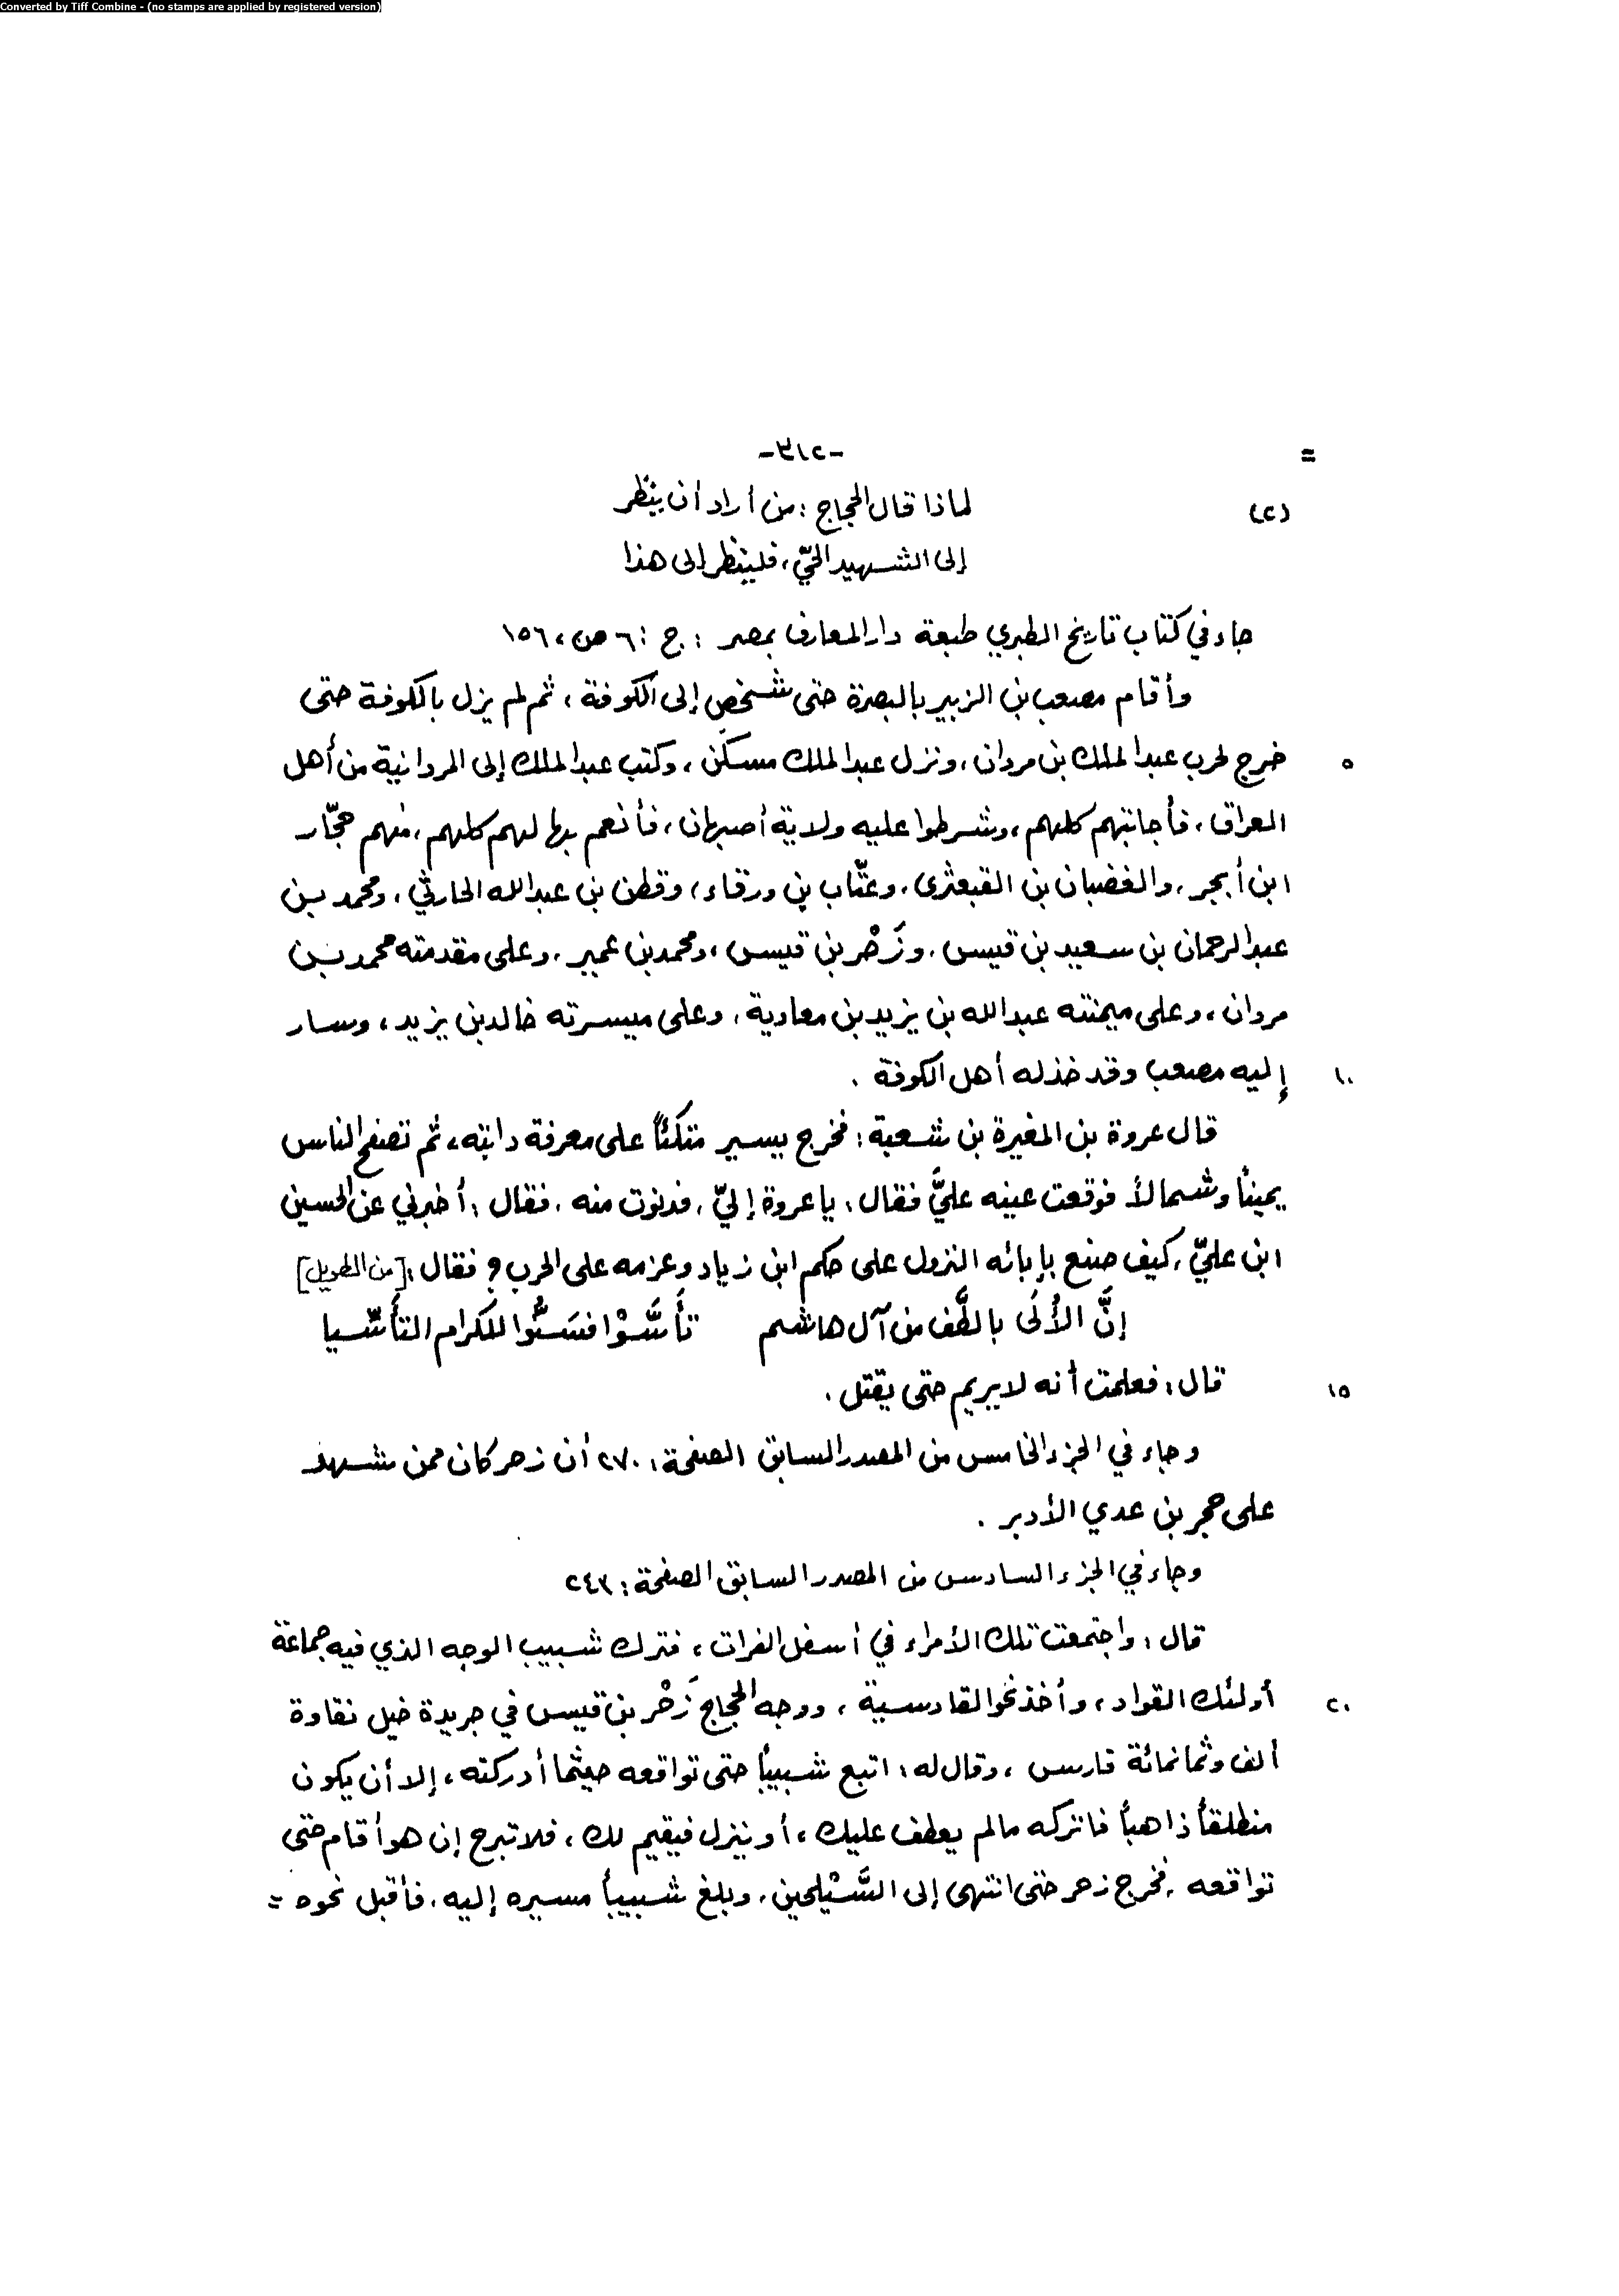 Converted by Tiff Combine - (no stamps are applied by registered version)
= -٣١٢-
(٢) لماذا قال الحجاج : من أراد أن ينظر
إلى الشهيد الحيّ ، فلينظر إلى هذا
جاء في كتاب تاريخ الطبري طبعة دار المعارف بمصر : ج : ٦ ص ، ١٥٦
وأقام مصعب بن الزبير بالبصرة حتى شخص إلى الكوفة ، ثم لم يزل بالكوفة حتى
٥ خرج لحرب عبد الملك بن مروان ، ونزل عبد الملك مسكن ، وكتب عبد الملك إلى المروانية من أهل
العراق ، فأجابتهم كلهم ، وشرطوا عليه ولاية أصبهان ، فأنعم بها لهم كلهم ، منهم حجّار
ابن أبجر ، والغضبان بن القبعثرى ، وعتّاب بن ورقاء ، وقطن بن عبد الله الحارثي ، ومحمد بن
عبد الرحمان بن سعيد بن قيس ، وزَحْر بن قيس ، ومحمد بن عمير . وعلى مقدمته محمد بن
مروان ، وعلى ميمنته عبد الله بن يزيد بن معاوية ، وعلى ميسرته خالد بن يزيد ، وسار
١٠ إليه مصعب وقد خذله أهل الكوفة .
قال عروة بن المغيرة بن شعبة : فخرج يسير متكئاً على معرفة دابته ، ثم تصفح الناس
يميناً وشمالاً فوقعت عينه عليَّ فقال : يا عروة إليّ ، فدنوت منه ، فقال : أخبرني عن الحسين
ابن عليّ ، كيف صنع بإبائه النزول على حكم ابن زياد وعزمه على الحرب ؟ فقال : [من الطويل]
إنَّ الأُلَى بالطَّف من آل هاشم تأَسَّوْا فسَنُّوا للكرام التأَسِّيا
١٥ قال : فعلمت أنه لا يريم حتى يقتل .
وجاء في الجزء الخامس من المصدر السابق الصفحة : ٢٧٠ أن زحر كان ممن شهد
على حجر بن عدي الأدبر .
وجاء في الجزء السادس من المصدر السابق الصفحة : ٢٤٣
قال : واجتمعت تلك الأمراء في أسفل الفرات ، فترك شبيب الوجه الذي فيه جماعة
٢٠ أولئك القواد ، وأخذ نحو القادسية ، ووجه الحجاج زَحْر بن قيس في جريدة خيل نقاوة
ألف وثمانمائة فارس ، وقال له : اتبع شبيباً حتى تواقعه حيثما أدركته ، إلا أن يكون
منطلقاً ذاهباً فاتركه ما لم يعطف عليك ، أو ينزل فيقيم لك ، فلا تبرح إن هو أقام حتى
تواقعه ، فخرج زحر حتى انتهى إلى السَّيْلحين ، وبلغ شبيباً مسيره إليه ، فأقبل نحوه =